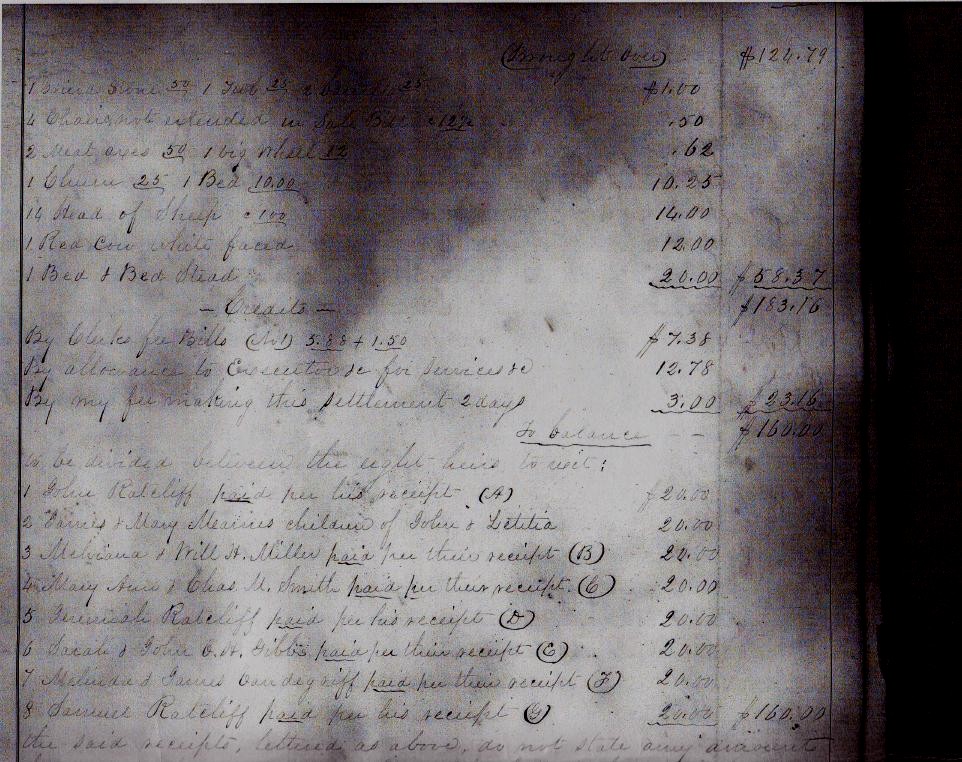 (Brought over) $124.79
1 50 1 Tub 25 25 $1.00
4 Chairs not intended in Sale Bill c 12½ .50
2 Meat axes 50 1 big Wheel 12 .62
1 Churn 25 1 Bed 10.00 10.25
14 Head of Sheep c 100 14.00
1 Red Cow white faced 12.00
1 Bed & Bed Stead 20.00 $58.37
— Credits — $183.16
By Clerks fee Bills (No1) 5.88 + 1.50 $7.38
By allowance to Executor &c for services &c 12.78
By my fee making this settlement 2 days 3.00 $23.16
To balance - - $160.00
to be divided between the eight heirs to wit:
1 John Ratcliff paid per his receipt (A) $20.00
2 James & Mary children of John & Letitia 20.00
3 & Will H. Miller paid per their receipt (B) 20.00
4 Mary Ann & Chas. M. Smith paid per their receipt. (C) 20.00
5 Jeremiah Ratcliff paid per his receipt (D) 20.00
6 Sarah & John Gibbs paid per their receipt (E) 20.00
7 Melinda & James Vandegriff paid per their receipt (F) 20.00
8 Samuel Ratcliff paid per his receipt (G) 20.00 $160.00
the said receipts, lettered as above, do not state any amount